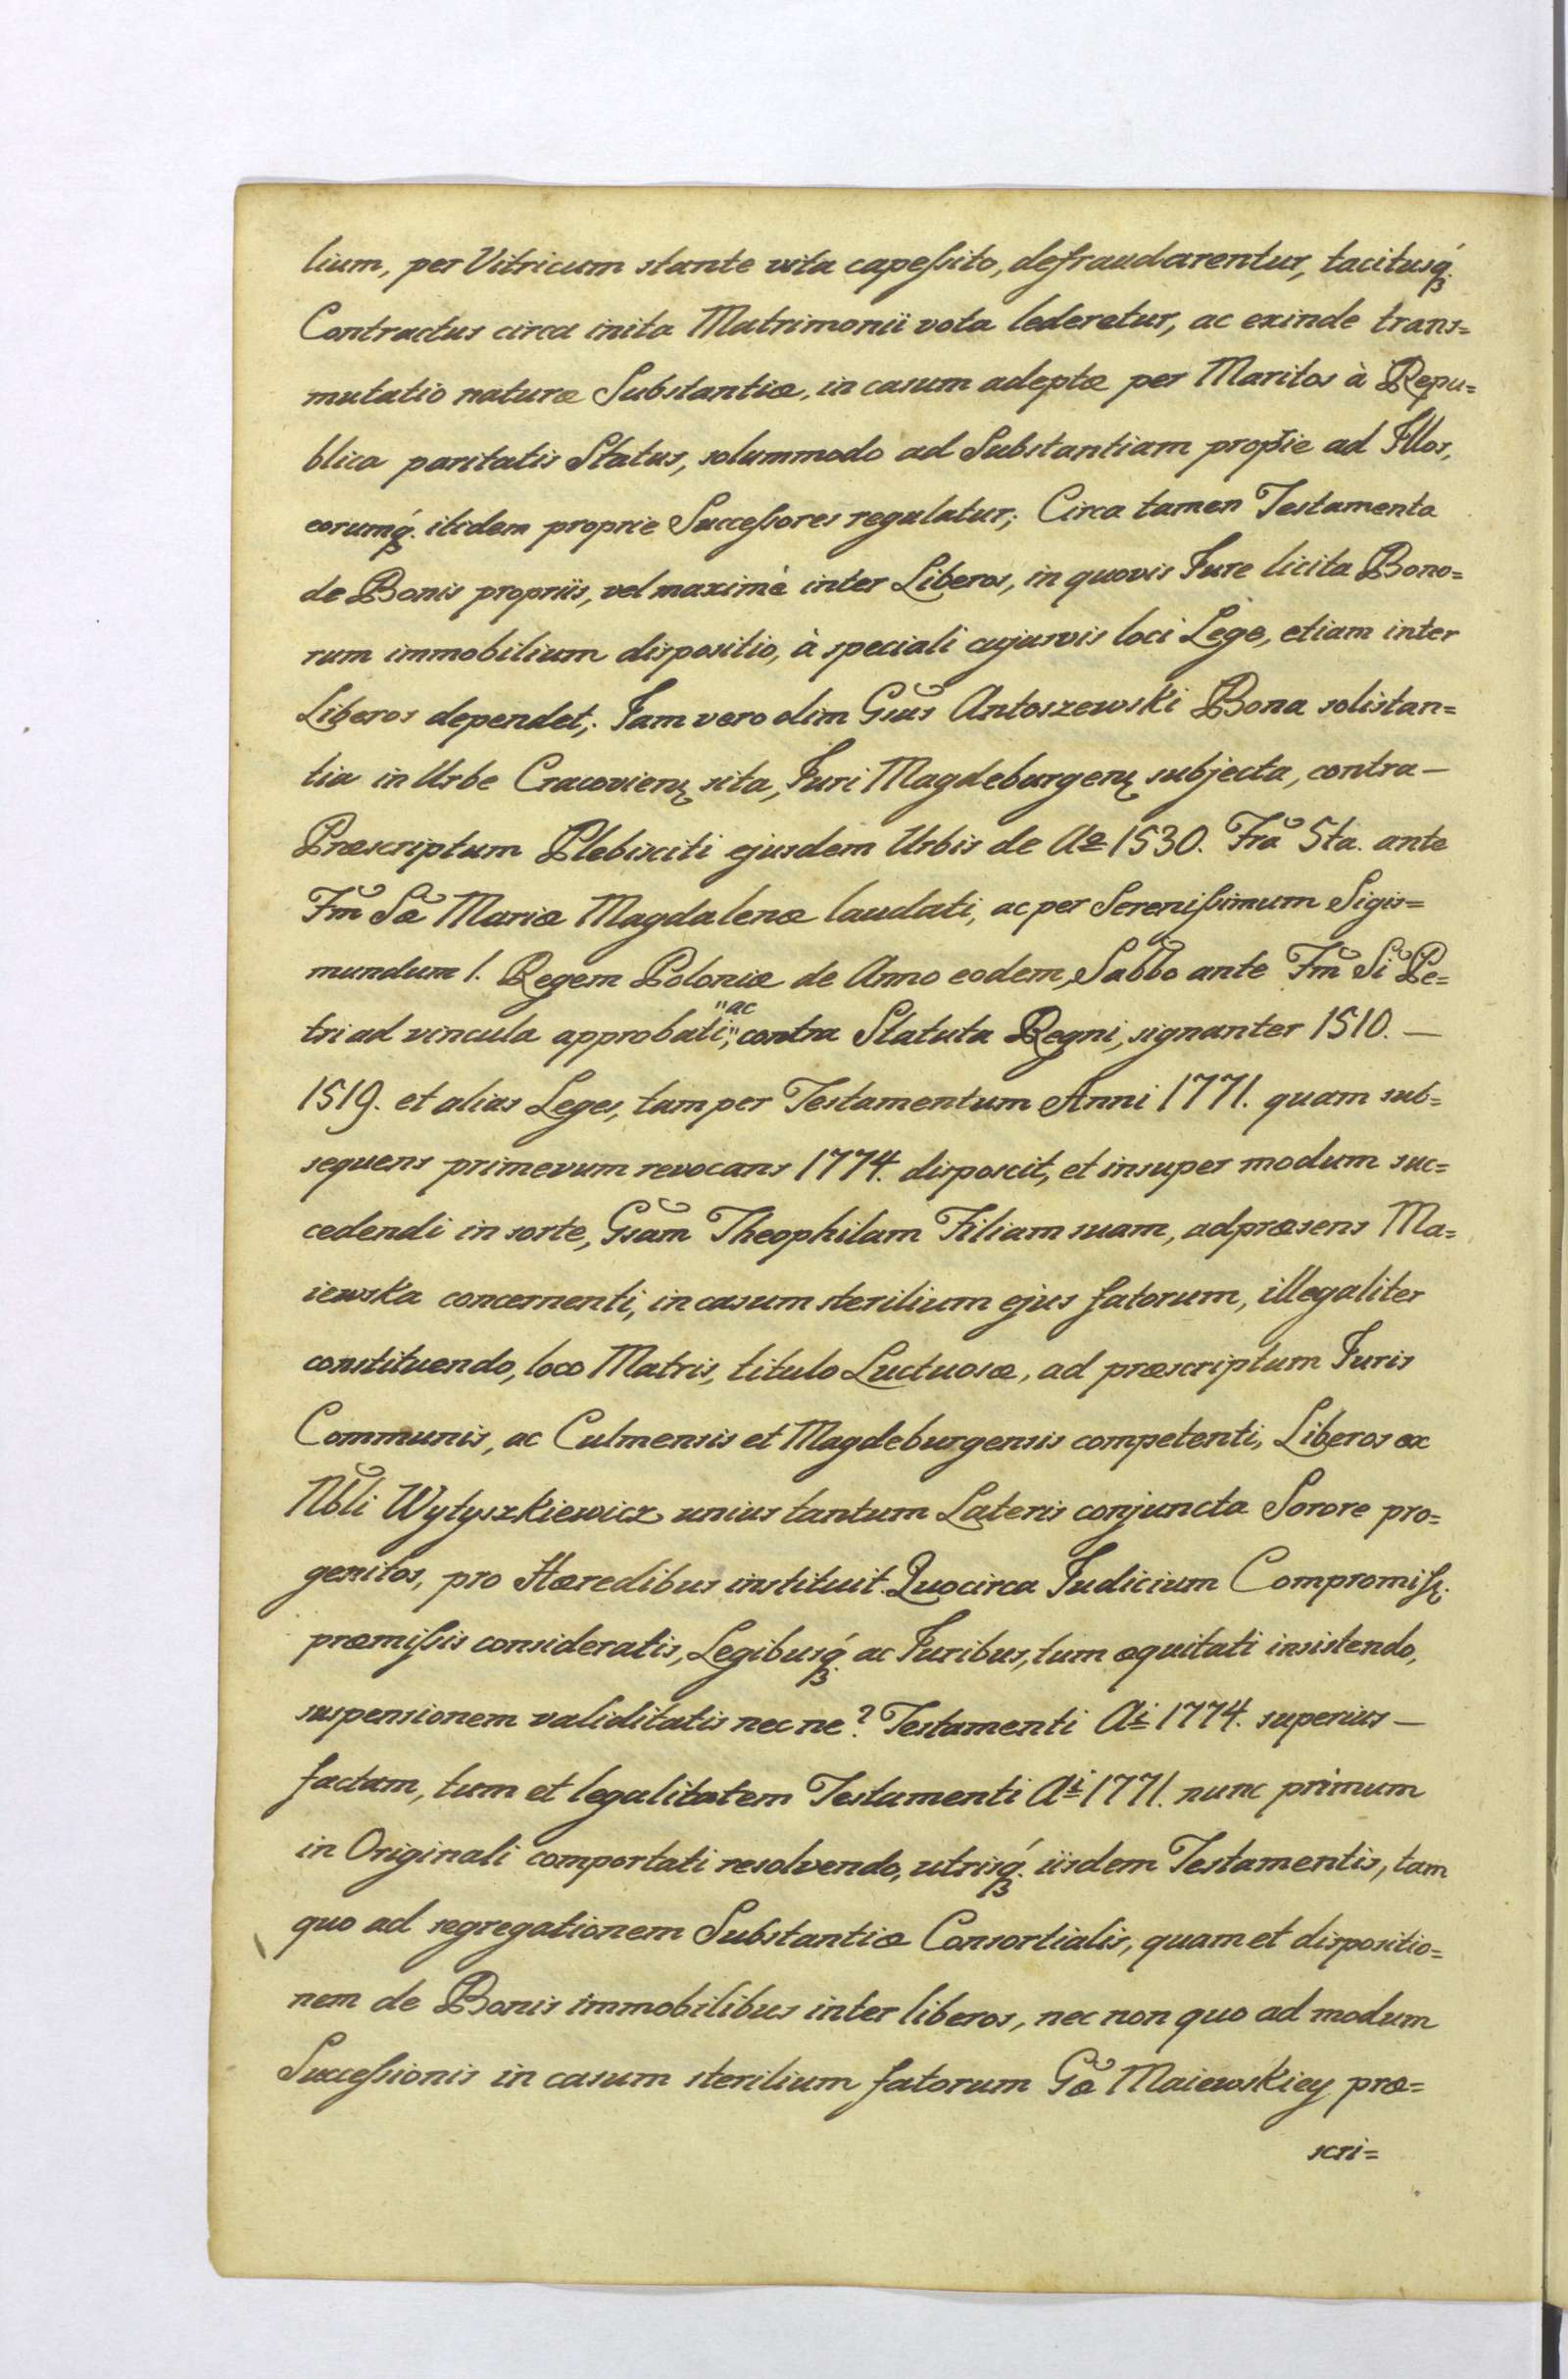 lium, per Vitricum stante vita capeſsito, defraudarentur, tacitusq́ꝫ.
Contractus circa inita Matrimonii vota lederetur, ac exinde trans=
mutatio naturæ Substantiæ, in casum adeptæ per Maritos à Repu=
blica paritatis Status, solummodo ad Substantiam proprie ad Illos,
eorumq́ꝫ. itidem proprie Succeſsores regulatur; Circa tamen Testamenta
de Bonis propriis, vel maximè inter Liberos, in quovis Jure licita Bono=
rum immobilium dispositio, à speciali cujusvis loci Lege, etiam inter
Liberos dependet; Jam vero olim Gsũs Antoszewski Bona solistan=
tia in Urbe Cracovienſ. sita, Juri Magdeburgenſ. subjecta, contra —
Præscriptum Plebisciti ejusdem Urbis de Aº 1530. Fra͠ 5ta. ante
Fm͠ Sæ͠ Mariæ Magdalenæ laudati, ac per Sereniſsimum Sigis=
mundum 1. Regem Poloniæ de Anno eodem, Sabbo͠ ante Fm͠ Si͠ Pe=
tri ad vincula approbati; "ac" contra Statuta Regni, signanter 1510. —
1519. et alias Leges, tam per Testamentum Anni 1771. quam sub=
sequens primevum revocans 1774. disposcit, et insuper modum suc=
cedendi in sorte, Gsam͠ Theophilam Filiam suam, ad præsens Ma=
iewska concernenti, in casum sterilium ejus fatorum, illegaliter
constituendo, loco Matris, titulo Luctuosæ, ad præscriptum Juris
Communis, ac Culmensis et Magdeburgensis competenti, Liberos ex
Nb͠li Wytyszkiewicz unius tantum Lateris conjuncta Sorore pro=
genitos, pro Hæredibus instituit. Quocirca Judicium Compromiſs.
præmiſsis consideratis, Legibusq́ꝫ. ac Juribus, tum æquitati insistendo,
suspensionem validitatis nec ne? Testamenti Ai 1774. superius —
factam, tum et legalitatem Testamenti Ai 1771. nunc primum
in Originali comportati resolvendo, utrisq́ꝫ. iisdem Testamentis, tam
quo ad segregationem Substantiæ Consortialis, quam et dispositio=
nem de Bonis immobilibus inter liberos, nec non quo ad modum
Succeſsionis in casum sterilium fatorum Gæ͠ Maiewskiey præ=
scri=